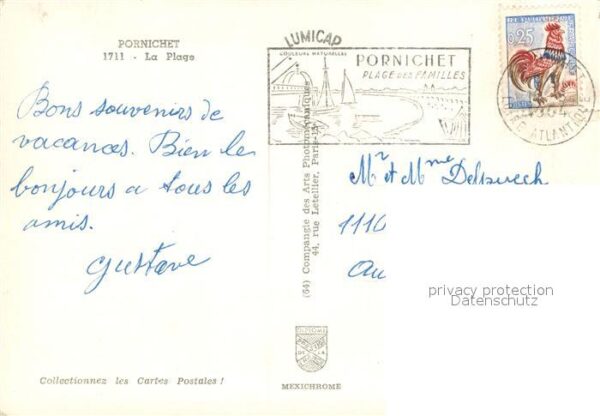 PORNICHET
1711 - La Plage
Bons souvenirs de
vacances. Bien les
bonjours a tous les
amis.
Gustave
Collectionnez les Cartes Postales !
LUMICAP
COULEURS NATURELLES
(64) Compangie des Arts Photomécaniques
44, rue Letellier, Paris-15e
MEXICHROME
PORNICHET
PLAGE DES FAMILLES
0,25
ATLANTIQUE
Mr et Mme Delpuech
1110
Au
privacy protection
Datenschutz